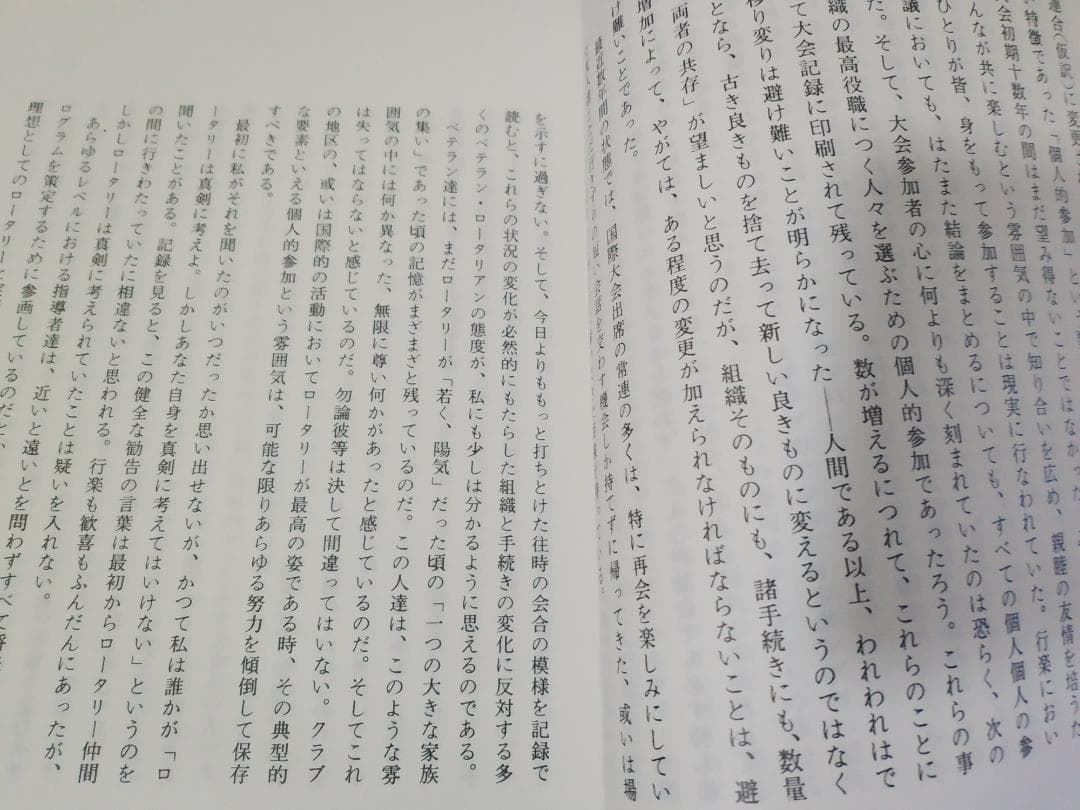 連合（仮訳）に変更
特徴であった「個人的参加」とい
会初期十数年の間はまだ望み得ないことではなかった
んなが共に楽しむという雰囲気の中で知り合いを広め、親睦の友情を培うた
ひとりが皆、身をもって参加することは現実に行なわれていた。行楽におい
議においても、はたまた結論をまとめるについても、すべての個人個人の参
た。そして、大会参加者の心に何よりも深く刻まれていたのは恐らく、次の
織の最高役職につく人々を選ぶための個人的参加であったろう。これらの事
て大会記録に印刷されて残っている。数が増えるにつれて、これらのことに
移り変りは避け難いことが明らかになった――人間である以上、われわれはで
となら、古き良きものを捨て去って新しい良きものに変えるというのではなく
両者の共存」が望ましいと思うのだが、組織そのものにも、諸手続きにも、数量
増加によって、やがては、ある程度の変更が加えられなければならないことは、避
け難いことであった。
最近数年間の状態では、国際大会出席の常連の多くは、特に再会を楽しみにしてい
会話を交わす機会しか持てずに帰ってきた、或いは場
を示すに過ぎない。そして、今日よりももっと打ちとけた往時の会合の模様を記録で
読むと、これらの状況の変化が必然的にもたらした組織と手続きの変化に反対する多
くのベテラン・ロータリアンの態度が、私にも少しは分かるように思えるのである。
ベテラン達には、まだロータリーが「若く、陽気」だった頃の「一つの大きな家族
の集い」であった頃の記憶がまざまざと残っているのだ。この人達は、このような雰
囲気の中には何か異なった、無限に尊い何かがあったと感じているのだ。そしてこれ
は失ってはならないと感じているのだ。勿論彼等は決して間違ってはいない。クラブ
の地区の、或いは国際的の活動においてロータリーが最高の姿である時、その典型的
な要素といえる個人的参加という雰囲気は、可能な限りあらゆる努力を傾倒して保存
すべきである。
最初に私がそれを聞いたのがいつだったか思い出せないが、かつて私は誰かが「ロ
ータリーは真剣に考えよ。しかしあなた自身を真剣に考えてはいけない」というのを
聞いたことがある。記録を見ると、この健全な勧告の言葉は最初からロータリー仲間
の間に行きわたっていたに相違ないと思われる。行楽も歓喜もふんだんにあったが、
しかしロータリーは真剣に考えられていたことは疑いを入れない。
あらゆるレベルにおける指導者達は、近いと遠いとを問わずすべて将
ログラムを策定するために参画しているのだと、
理想としてのロータリーを